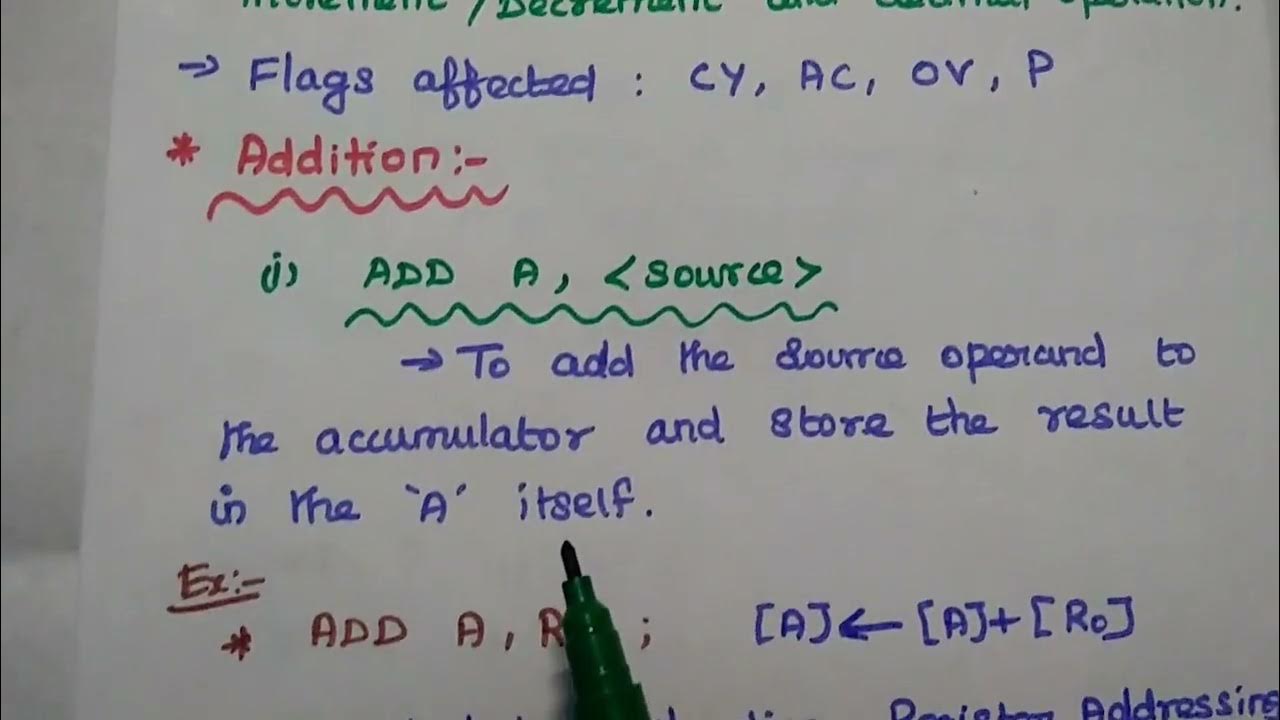 /Decrement and decimal operation.
→ Flags affected : CY, AC, OV, P
* Addition:-
(i) ADD A, <source>
→ To add the source operand to
the accumulator and store the result
in the 'A' itself.
Ex:-
* ADD A, R ; [A] ← [A] + [R0]
Register Addressing